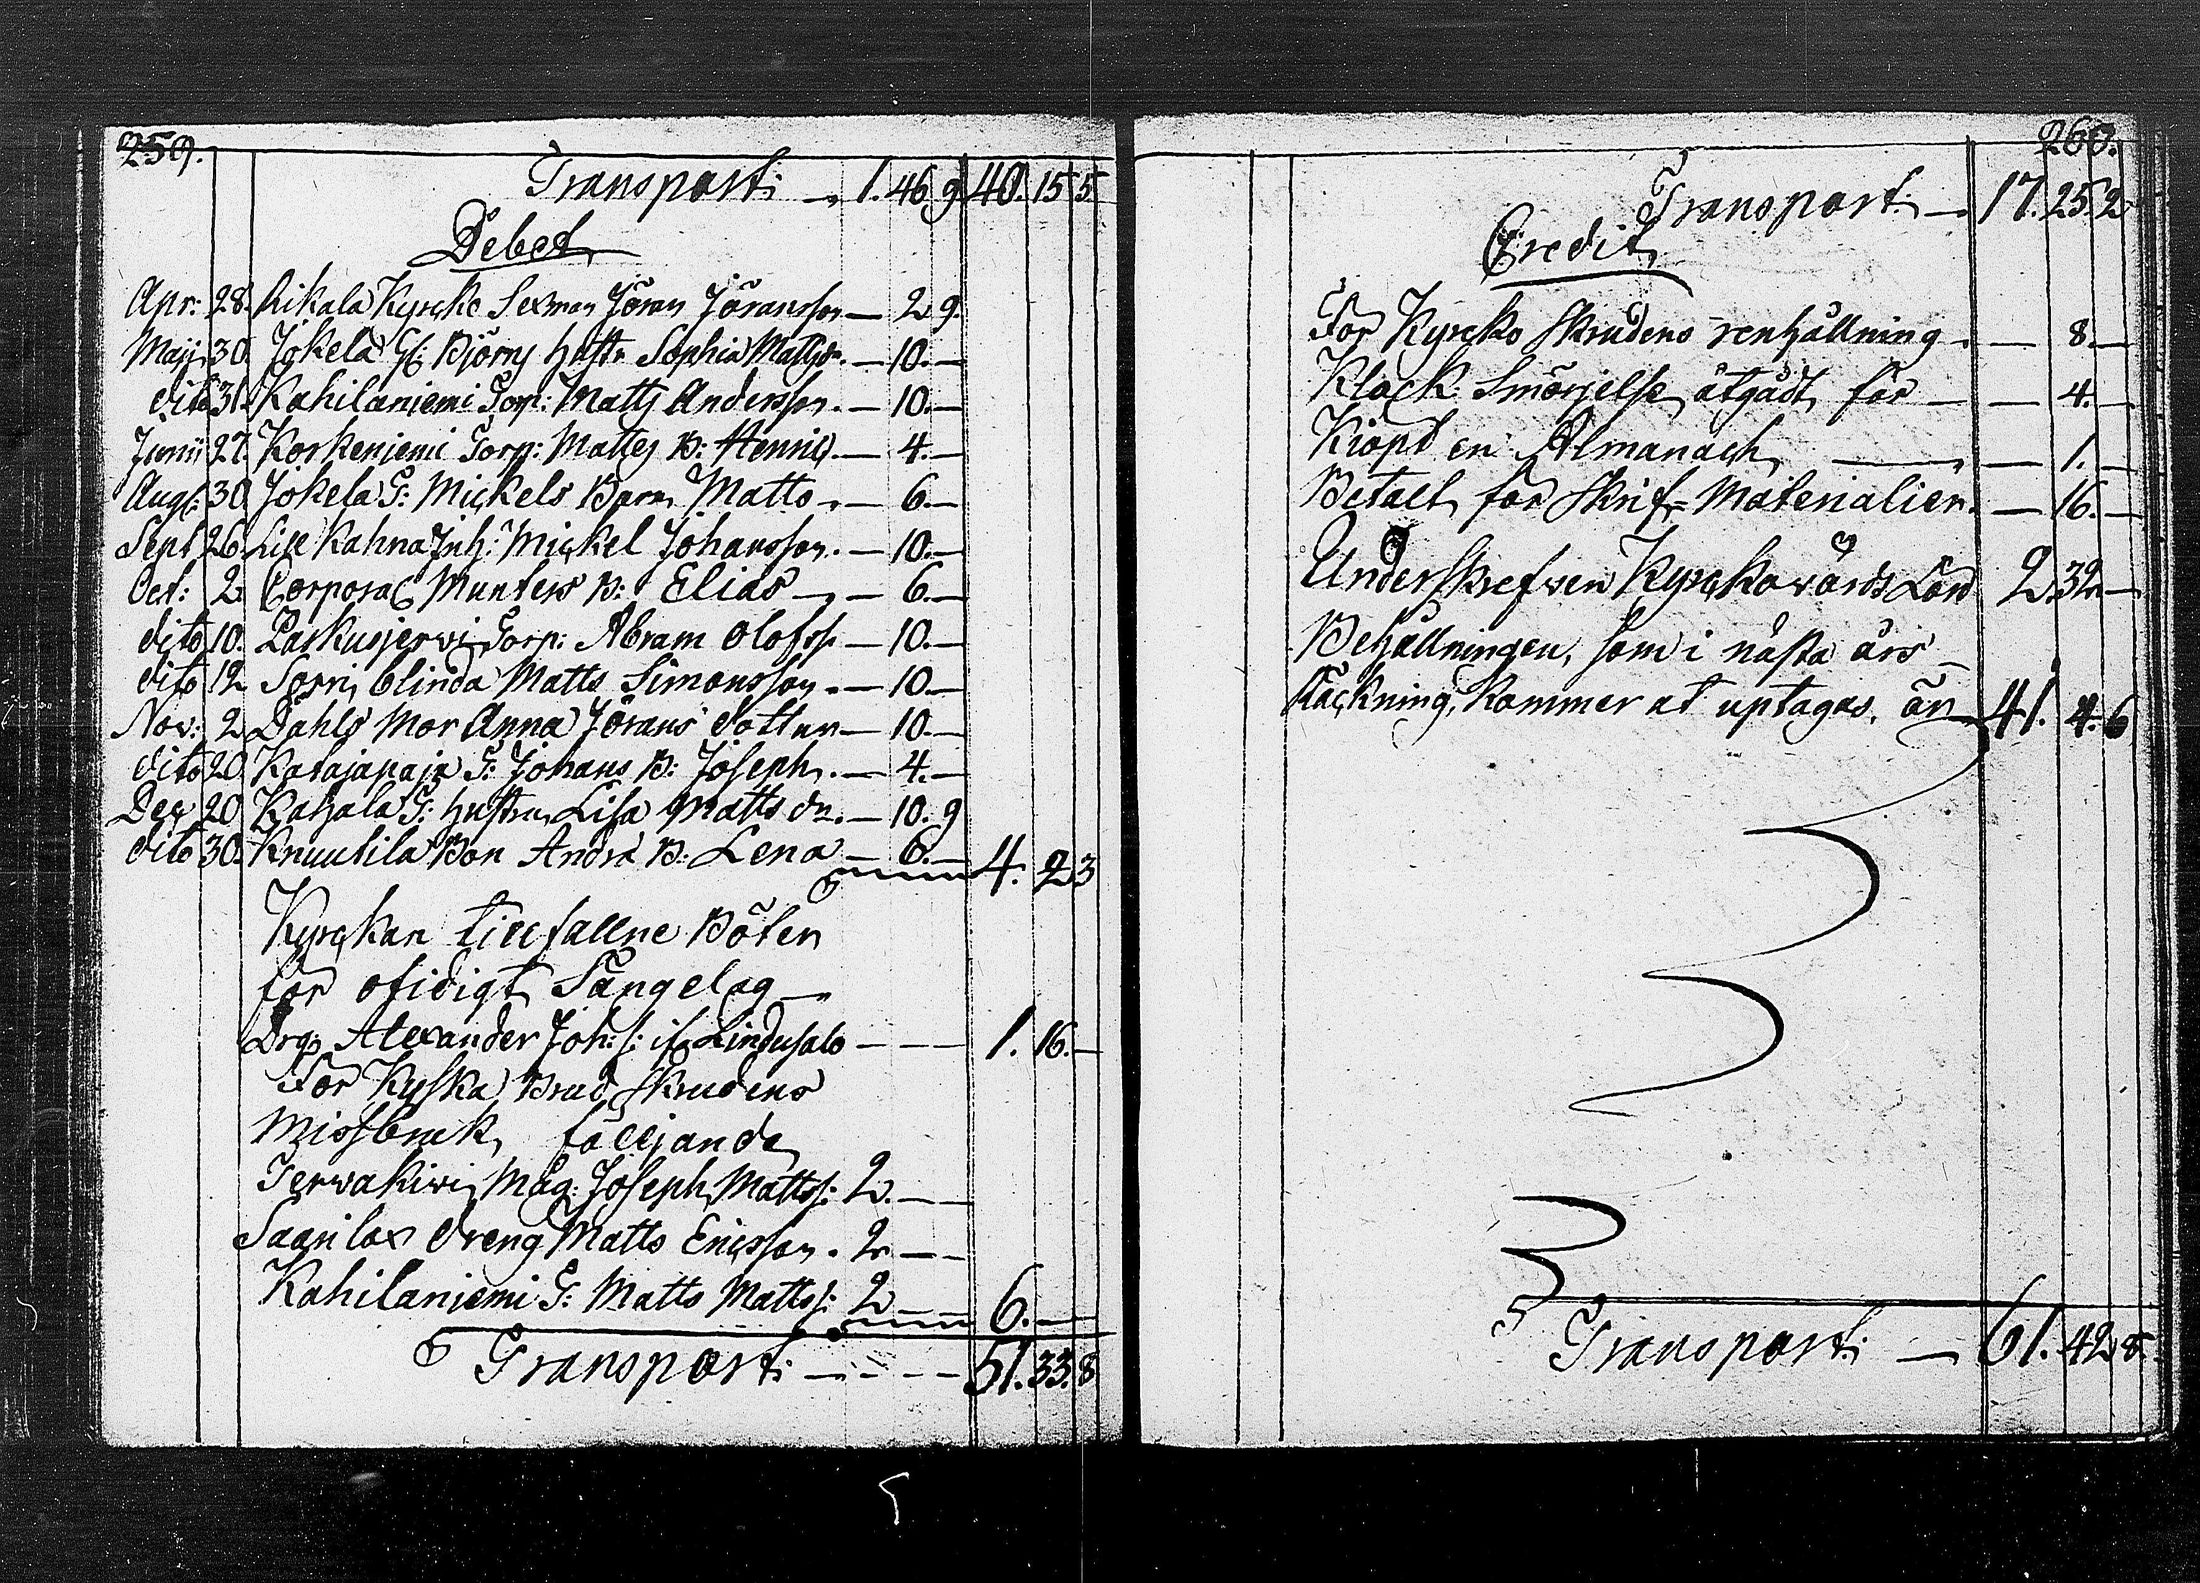 259.
Transport: 1. 46 9 40. 15 5
Debet
Apr: 28. Rikala Kyrcko Sexman Jöran Jöransson — 2 9.
Maji 30. Jokela G: Björns Hustr Sophia Mattsdr. — 10. —
dito 31. Kahilaniemi Torp: Matts Andersson. — 10. —
Junii 27. Korkeniemi Torp: Mattes B: Henric. — 4. —
Aug: 30. Jokela G: Mickels Barn Matts — 6. —
Sept 26. Lill Kahna Inh: Mickel Johansson. — 10. —
Oct: 2. Corporal Munters B: Elias — 6. —
dito 10. Laskusjerwi Torp: Abram Olofss. — 10. —
dito 12 Sorri blinda Matts Simonsson. — 10. —
Nov: 2 Dahls Mor Anna Jörans dotter — 10. —
dito 20 Katajapaja G: Johans B: Joseph. — 4. —
Dec 20 Kahala G: hustru Lisa Matts dr. — 10. 9
dito 30. Knuutila Bon Andrs B: Lena — 6. — 4. 2 3
Kyrckan tillfallne Böter
för otidigt Sängelag
Drg Alexander Joh: s: if Lindusalo — — — 1. 16. —
För Kyska Brud Skrudens
Missbruk, följjande
Terwakiwi Måg: Joseph Mattss: 2. — —
Saarilax Dreng Matts Ericsson. 2. — —
Kahilaniemi G: Matts Mattss: 2 — — 6. —
Transport: — 51. 33. 8
260.
Transport: — 17. 25. 2
Credit
För Kyrcko Skrudens renhållning. — 8. —
Klock Smörjelse åtgådt för — — 4. —
Kiöpt en Almanach, — — 1. —
Betalt för Skrif-Materialier. — 16. —
Underskrefwen Kyrckowärds Lön 2. 32. —
Behållningen, som i nästa års
Räckning, kommer at uptagas, är 41. 4. 6
Transport: — 61. 42. 8.